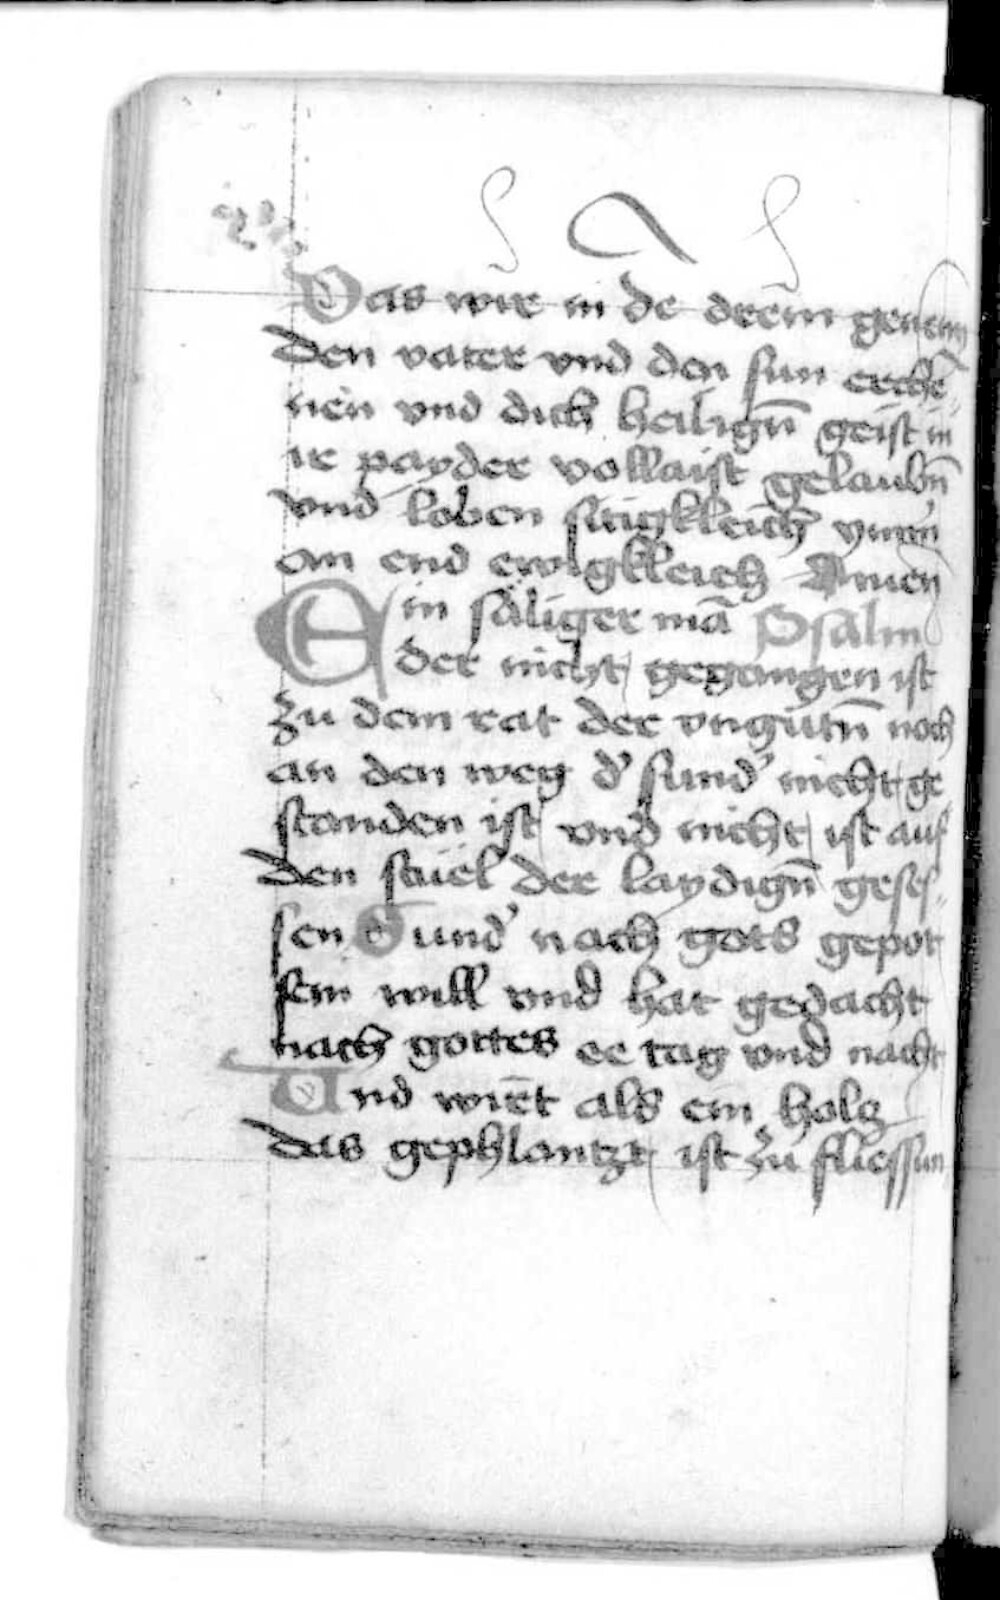 Das wir in de drein genem
den vater vnd den sun erche¯
nen vnd dich heilign̄ geist in
ir payder vollaist gelaubn̄
vnd loben sitigkleich ymm̄
an end ewigkleich Amen
Ein säliger mā Psalm
der nicht gegangen ist
zu dem rat der vngutn̄ noch
an den weg d' sund' nicht ge
standen ist vnd nicht ist auf
den stuel der laydign̄ geses
sen Sund' nach gots gepot
sein will vnd hat gedacht
nach gottes ee tag vnd nacht
Vnd wirt als ein holcz
das gephlantzt ist zu fliessun